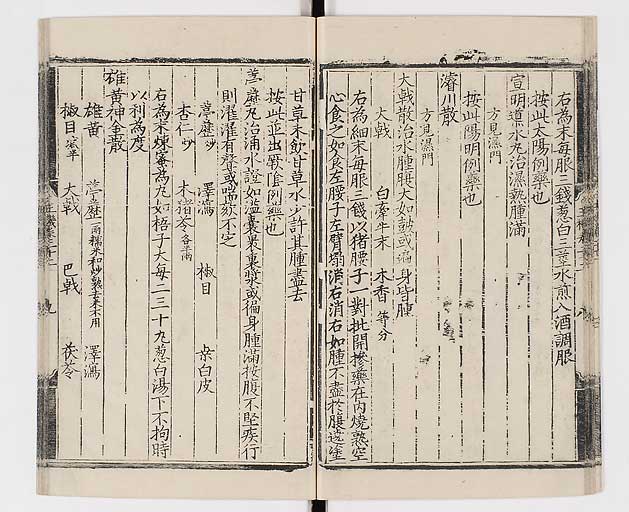 右為末每服三錢葱白三莖水煎入酒調服
按此太陽例藥也
宣明導水丸治濕熱腫滿
方見濕門
按此陽明例藥也
濬川散
方見濕門
大戟散治水腫腹大如鼓或遍身皆腫
大戟 白牽牛末 木香等分
右為細末每服三錢以猪腰子一對批開摻藥在內燒熟空
心食之如食左腰子左臂塌消右消右如腫不盡於腹遶塗
甘草末飲甘草水少許其腫盡去
按此並出厥陰例藥也
葶藶丸治涌水證如溢囊裹漿或徧身腫滿按腹不堅疾行
則濯濯有聲或喘咳不定
葶藶炒 澤瀉 椒目 桒白皮
杏仁炒 木猪苓各半兩
右為末煉蜜為丸如梧子大每二三十丸葱白湯下不拘時
以利為度
雄黃神金散
雄黃 葶藶二兩糯米和炒熟去米不用 澤瀉
椒目 大戟 巴戟 茯苓